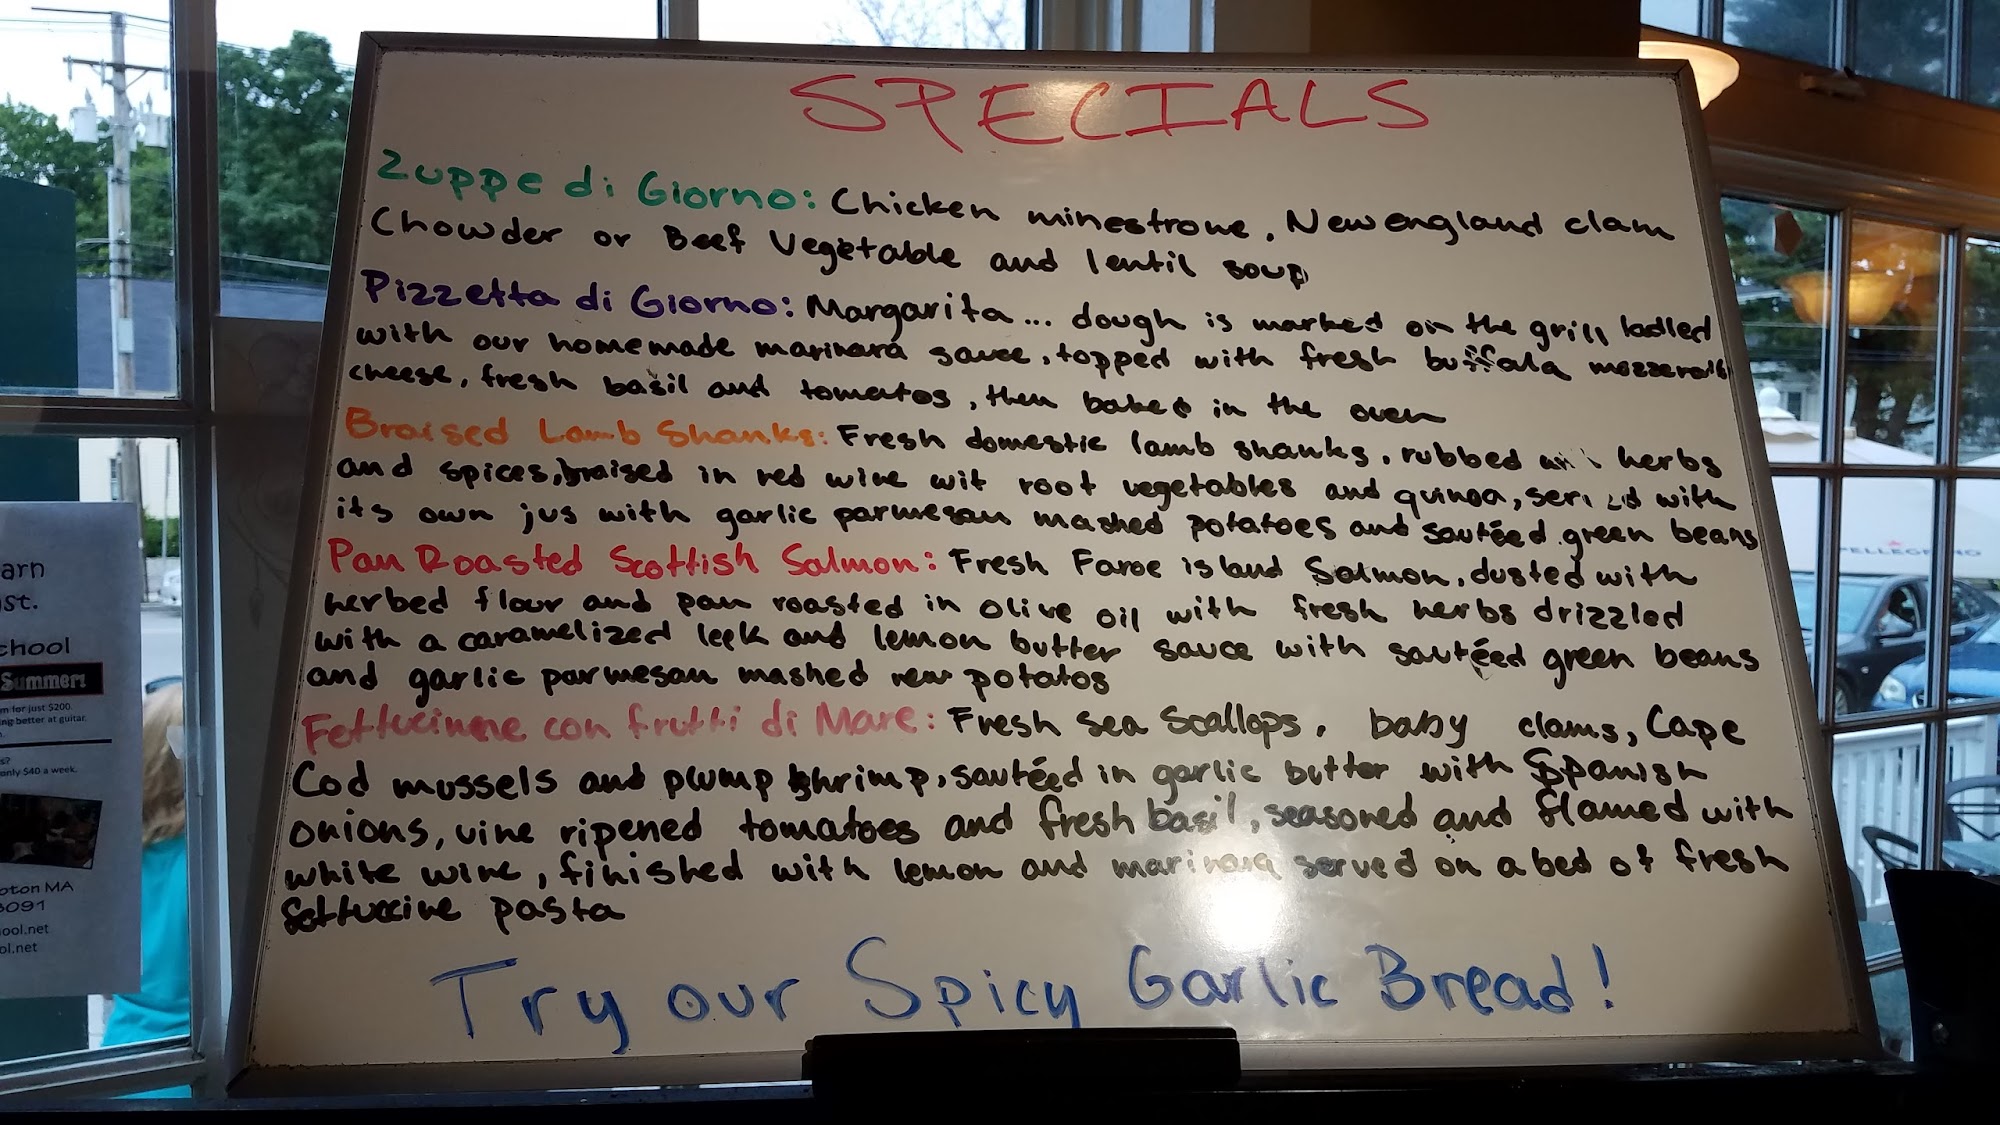 SPECIALS
Zuppe di Giorno: Chicken minestrone, New england clam
Chowder or Beef Vegetable and lentil soup
Pizzetta di Giorno: Margarita... dough is marked on the grill ladled
with our homemade marinara sauce, topped with fresh buffala mozzerola
cheese, fresh basil and tomatos, then baked in the oven
Braised Lamb Shanks: Fresh domestic lamb shanks, rubbed herbs
and spices, braised in red wine wit root vegetables and quinoa, served with
its own jus with garlic parmesan mashed potatoes and sautéed green beans
Pan Roasted Scottish Salmon: Fresh Faroe island Salmon, dusted with
herbed flour and pan roasted in olive oil with fresh herbs drizzled
with a caramelized leek and lemon butter sauce with sautéed green beans
and garlic parmesan mashed new potatos
Fettucinne con frutti di Mare: Fresh sea Scallops, baby clams, Cape
Cod mussels and plump shrimp, sautéed in garlic butter with Spanish
onions, vine ripened tomatoes and fresh basil, seasoned and flamed with
white wine, finished with lemon and marinara served on a bed of fresh
fettuccine pasta
Try our Spicy Garlic Bread!
arn
st.
chool
Summer!
m for just $200.
ng better at guitar.
s?
only $40 a week.
oton MA
3091
ool.net
ol.net
PELLEGRINO